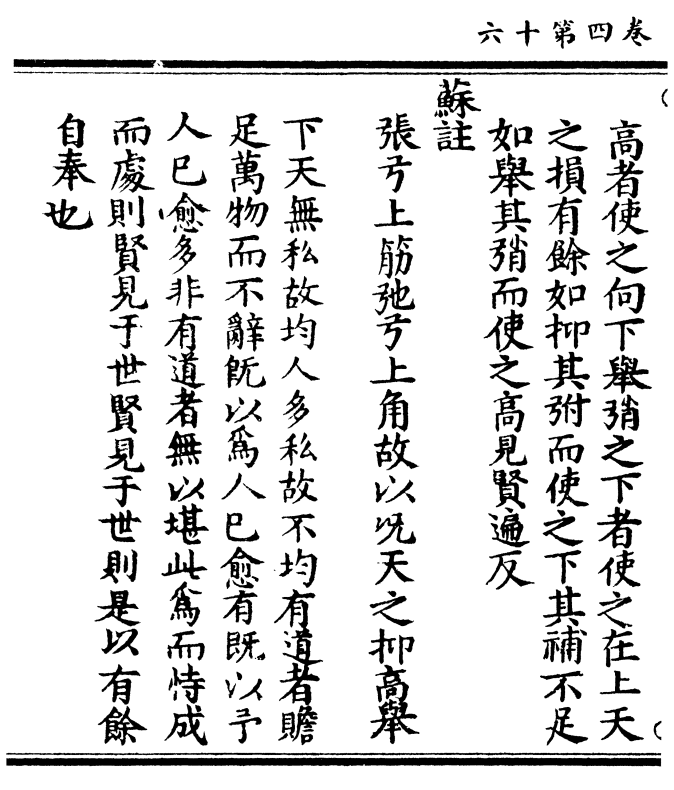 卷四第十六
高者使之向下舉弰之下者使之在上天
之損有餘如抑其弣而使之下其補不足
如舉其弰而使之高見賢遍反
蘇註
張弓上筋弛弓上角故以況天之抑高舉
下天無私故均人多私故不均有道者贍
足萬物而不辭既以爲人已愈有既以予
人已愈多非有道者無以堪此爲而恃成
而處則賢見于世賢見于世則是以有餘
自奉也